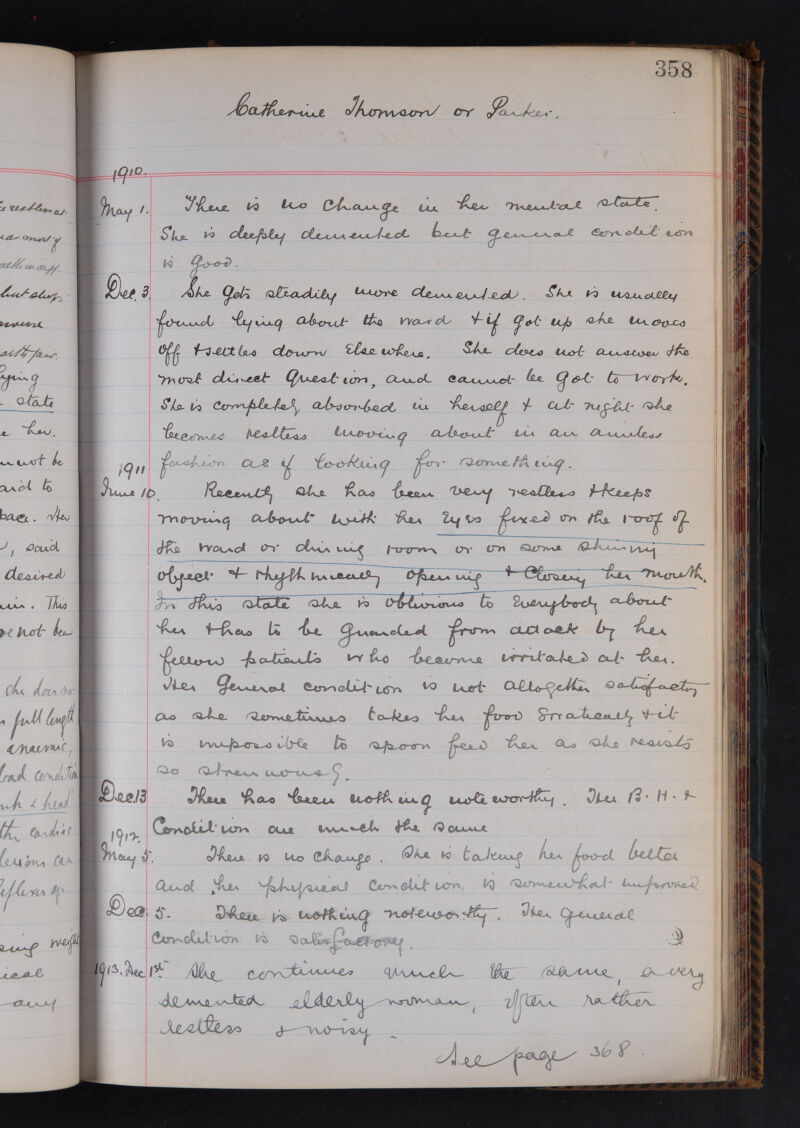 358
Catherine Thomson or Parker.
1910.
May 1. There is no change in her mental state.
She is deeply demented but general condition
is good.
Dec. 3. She gets steadily more demented. She is usually
found lying about the ward & if got up she moves
off & settles down elsewhere. She does not answer the
most direct question, and cannot be got to work.
She is completely absorbed in herself & at night she
becomes restless moving about in an aimless
fashion as if looking for something.
1911
June 10. Recently she has been very restless & keeps
moving about with her eyes fixed on the roof of
the ward or dining room or on some shining
object & rhythmically opening & closing her mouth.
In this state she is oblivious to everybody about
her & has to be guarded from attack by her
fellow patients who become irritated at her.
Her general condition is not altogether satisfactory
as she sometimes takes her food erratically & it
is impossible to spoon feed her as she resists
so strenuously.
Dec 13 There has been nothing noteworthy. Her B. H. &
Condition are much the same
1912.
May 5. There is no change. She is taking her food better
and her physical condition is somewhat improved
Dec. 5. There is nothing noteworthy. Her general
condition is satisfactory.
1913. Dec 1st She continues much the same, a very
demented elderly woman, often rather
restless & noisy.
See page 368.
state
her.
not be
and to
Her
said
desired
This
not been
she does no
full length
anaemic,
bad condition
& head
cardiac
lesions can
weight
any